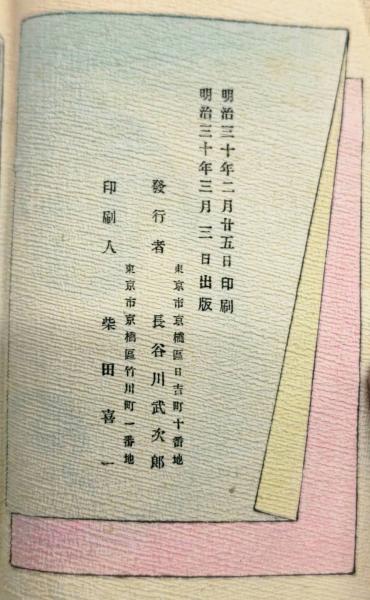 明治三十年二月廿五日印刷
明治三十年三月三日出版
東京市京橋區日吉町十番地
發行者 長谷川武次郎
東京市京橋區竹川町一番地
印刷人 柴田喜一